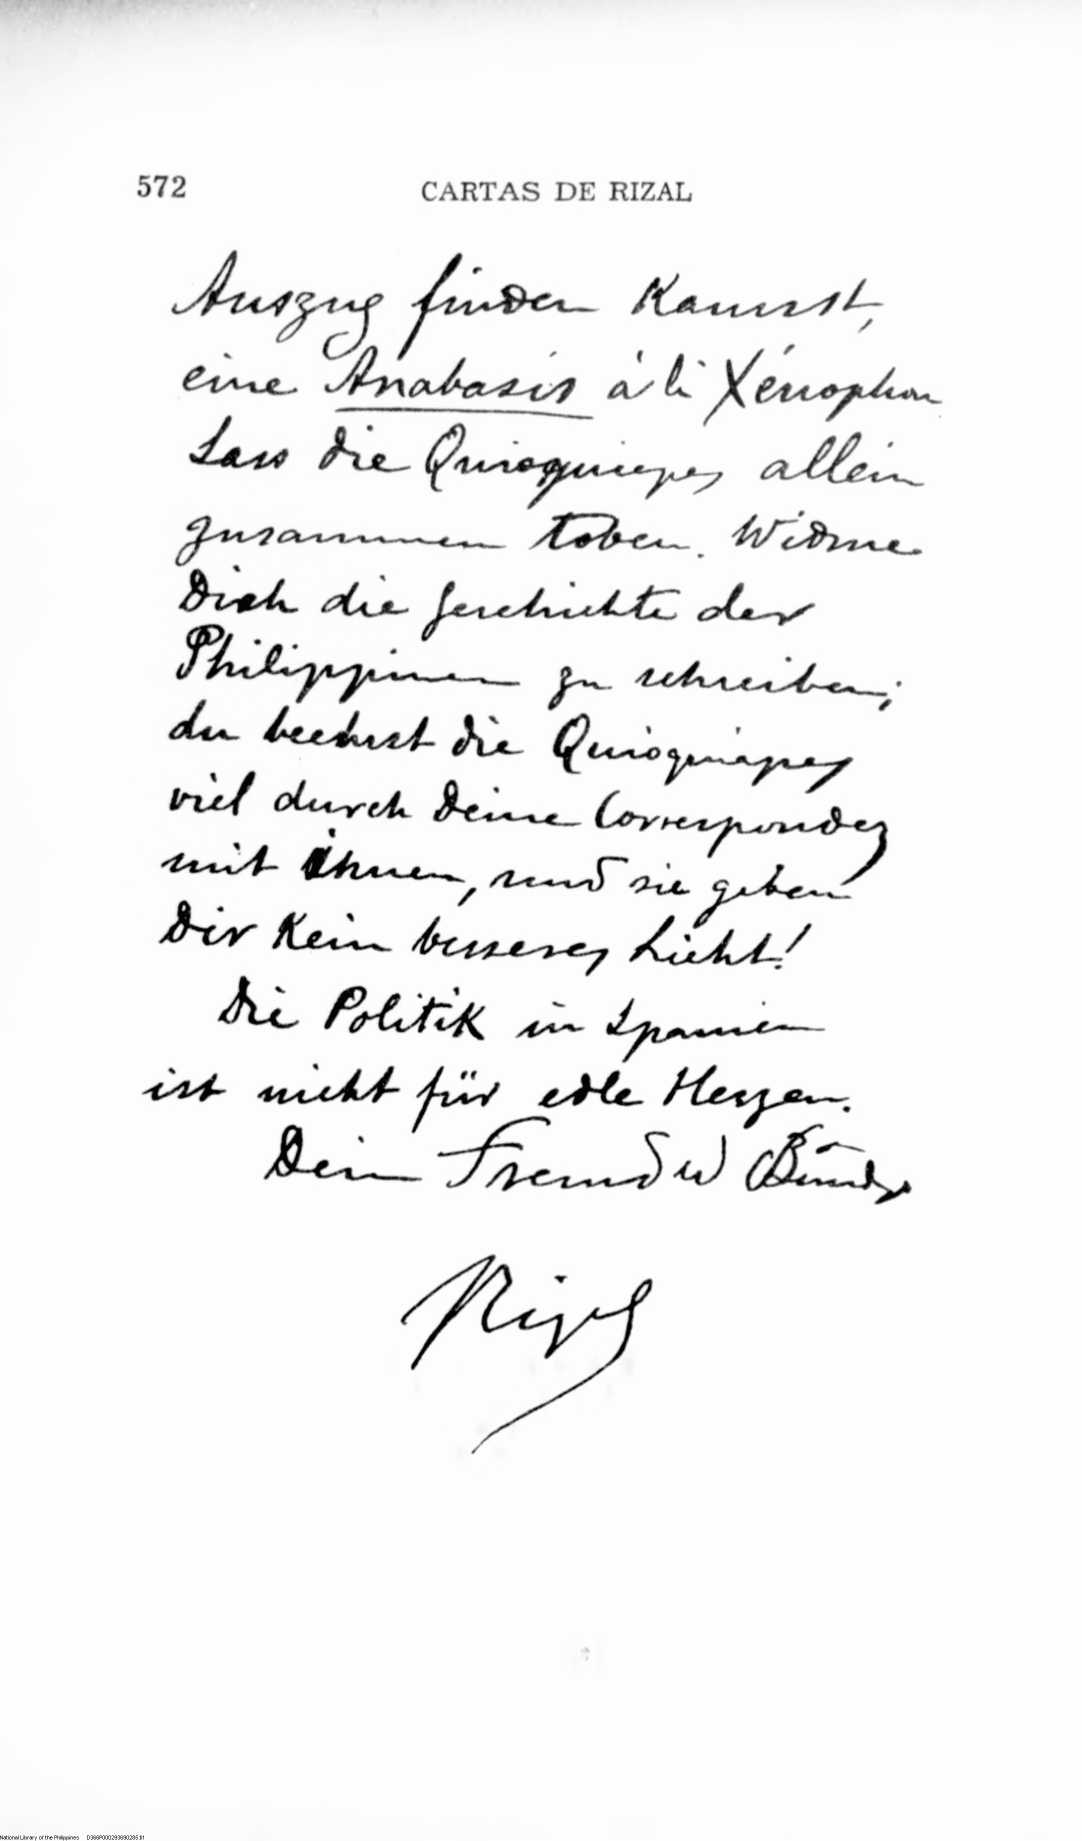 572 CARTAS DE RIZAL
Auszug finden Kannst,
eine Anabasis à la Xénophon
Lass die Quioquiapes allein
zusammen toben. Widme
Dich die Geschichte der
Philippinen zu schreiben;
du beehrst die Quioquiapes
viel durch Deine Correspondez
mit ihnen, und sie geben
Dir Kein besseres Licht!
Die Politik in Spanien
ist nicht für edle Herzen.
Dein Freund u Bruder
Rizal
National Library of the Philippines